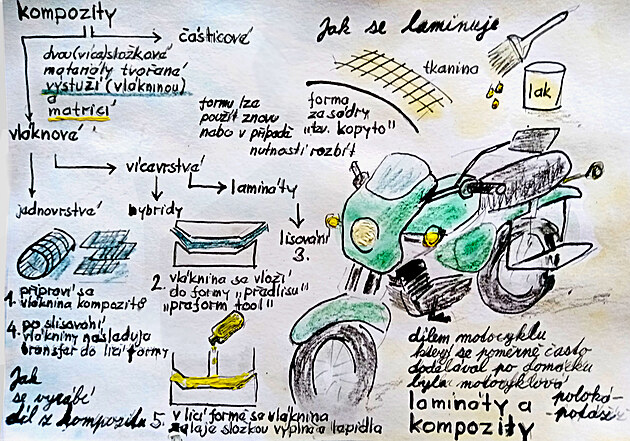 kompozity
částicové
dvou(více)složkové
materiály tvořané
vystuží (vlákninou)
a
matricí
vláknové
vícevrstvé
jednovrstvé
hybridy
lamináty
lisování
3.
Jak se laminuje
tkanina
lak
formu lze
použít znovu
nebo v případě
nutnosti rozbít
forma
ze sádry
"tzv. kopyto"
1. připraví se
vláknina kompozitů
2. vláknina se vloží
do formy "předlisu"
"praform tool"
4. po slisování
vlákniny následuje
transfer do licí formy
Jak
se vyrábí
díl z kompozitu
5. v licí formě se vláknina
zaleje složkou výplně a lepidla
dílem motocyklu
který se poměrně často
dodělával po domácku
byla motocyklová
lamináty a
kompozity